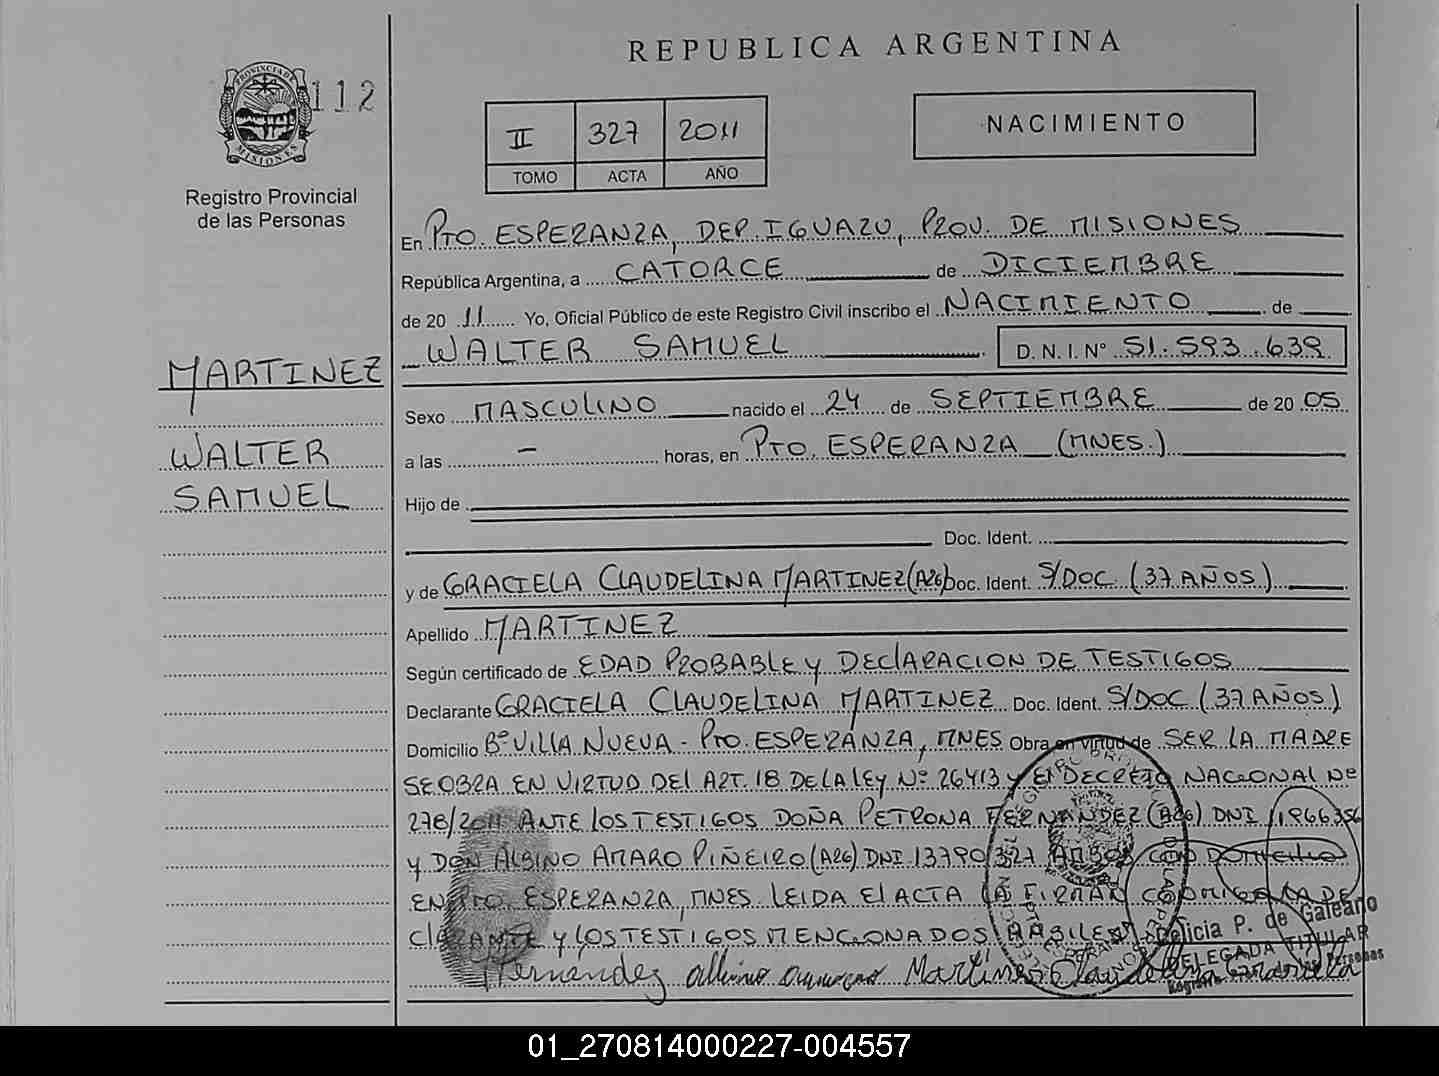 REPUBLICA ARGENTINA
PROVINCIA DE
MISIONES
112
Registro Provincial
de las Personas
II 327 2011
TOMO ACTA AÑO
NACIMIENTO
En PTO. ESPERANZA, DEP. IGUAZU, PROV. DE MISIONES
República Argentina, a CATORCE de DICIEMBRE
de 20 11 Yo, Oficial Público de este Registro Civil inscribo el NACIMIENTO de
WALTER SAMUEL D.N.I. Nº 51.593.639
MARTINEZ
WALTER
SAMUEL
Sexo MASCULINO nacido el 24 de SEPTIEMBRE de 20 05
a las - horas, en PTO. ESPERANZA (MNES.)
Hijo de
Doc. Ident.
y de GRACIELA CLAUDELINA MARTINEZ (A26) Doc. Ident. S/DOC (37 AÑOS)
Apellido MARTINEZ
Según certificado de EDAD PROBABLE Y DECLARACION DE TESTIGOS
Declarante GRACIELA CLAUDELINA MARTINEZ Doc. Ident. S/DOC (37 AÑOS)
Domicilio Bº VILLA NUEVA - PTO. ESPERANZA, MNES Obra en virtud de SER LA MADRE
SE OBRA EN VIRTUD DEL ART. 18 DE LA LEY Nº 26413 y El DECRETO NACIONAL Nº
278/2011 ANTE los TESTIGOS DOÑA PETRONA FERNANDEZ (A26) DNI
y DON ALBINO AMARO PIÑEIRO (A26) DNI 13790327 AMBOS CON DOMICILIO
EN PTO. ESPERANZA, MNES. LEIDA El ACTA LA FIRMAN CONMIGO LA DE
ClARANTE y LOS TESTIGOS MENCIONADOS
Felicia P. de Galeano
DELEGADA TITULAR
Hernandez albino Martinez
01_270814000227-004557